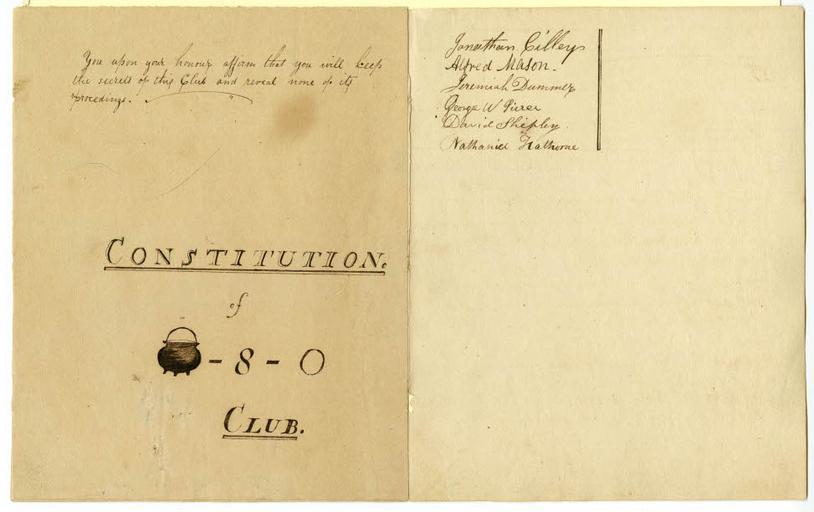 You upon your honour affirm that you will keep
the secrets of this Club and reveal none of its
procedings.
CONSTITUTION.
of
- 8 - O
CLUB.
Jonathan Cilley
Alfred Mason.
Jeremiah Dummer
George W Pierce
David Shepley.
Nathaniel Hathorne